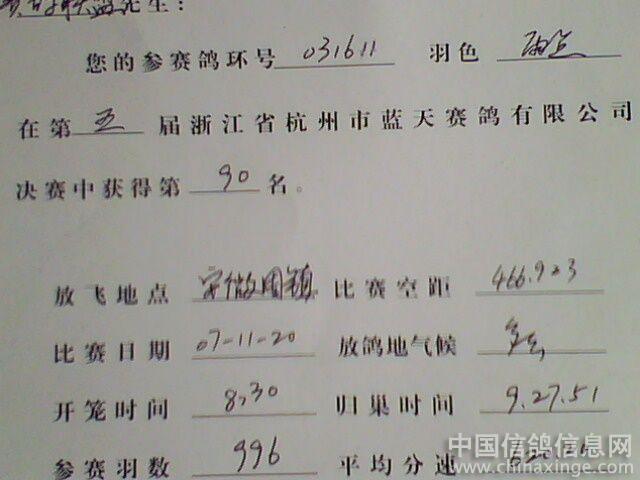 先生：
您的参赛鸽环号 031611 羽色 雨点
在第 五 届浙江省杭州市蓝天赛鸽有限公司
决赛中获得第 90 名。
放飞地点 安徽固镇 比赛空距 466.923
比赛日期 07-11-20 放鸽地气候
开笼时间 8,30 归巢时间 9.27.51
参赛羽数 996 平均分速
中国信鸽信息网
www.chinaxinge.com